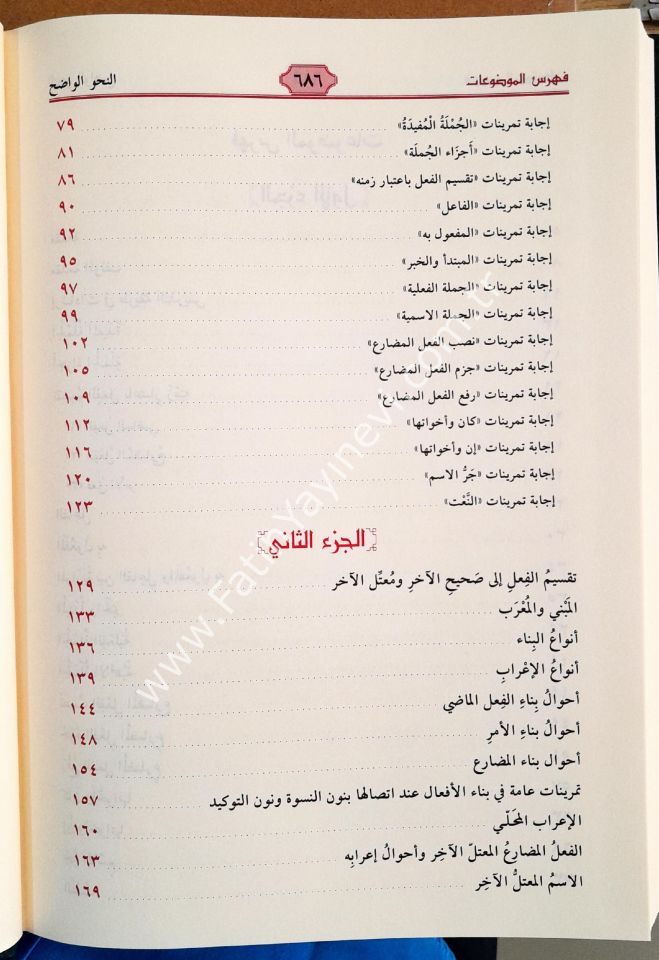 فهرس الموضوعات ٦٨٦ النحو الواضح
إجابة تمرينات «الجُمْلَةُ الْمُفِيدَةُ» ٧٩
إجابة تمرينات «أَجزَاء الجُملَة» ٨١
إجابة تمرينات «تقسيم الفعل باعتبار زمنه» ٨٦
إجابة تمرينات «الفاعل» ٩٠
إجابة تمرينات «المفعول به» ٩٢
إجابة تمرينات «المبتدأ والخبر» ٩٥
إجابة تمرينات «الجملة الفعلية» ٩٧
إجابة تمرينات «الجملة الاسمية» ٩٩
إجابة تمرينات «نصب الفعل المضارع» ١٠٢
إجابة تمرينات «جزم الفعل المضارع» ١٠٥
إجابة تمرينات «رفع الفعل المضارع» ١٠٩
إجابة تمرينات «كان وأخواتها» ١١٢
إجابة تمرينات «إن وأخواتها» ١١٦
إجابة تمرينات «جَرُّ الاسم» ١٢٠
إجابة تمرينات «النَّعْت» ١٢٣
الجزء الثاني
تقسيمُ الفِعلِ إلى صَحيحِ الآخرِ ومُعتَّلِ الآخر ١٢٩
المَبْني والمُعْرَب ١٣٣
أنواعُ البِناء ١٣٦
أنواعُ الإعْرابِ ١٣٩
أحوالُ بِناءِ الفِعل الماضي ١٤٤
أحوالُ بناءِ الأمرِ ١٤٨
أحوال بناء المضارع ١٥٤
تمرينات عامة في بناء الأفعال عند اتصالها بنون النسوة ونون التوكيد ١٥٧
الإعراب المَحَلّي ١٦٠
الفعلُ المضارعُ المعتلّ الآخِر وأحوالُ إعرابِه ١٦٣
الاسمُ المعتلُّ الآخِر ١٦٩
www.FatihYayinevi.com.tr